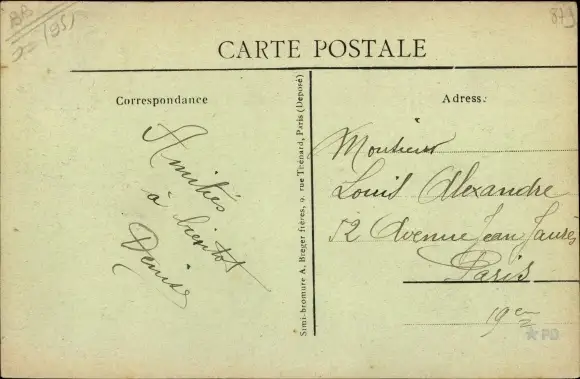 BB
(95)
879
CARTE POSTALE
Correspondance
Adresse
Amitiés
à bientot
Denise
Simi-bromure A. Breger frères, 9, rue Thénard, Paris (Déposé)
Monsieur
Louis Alexandre
52 Avenue Jean Jaurès
Paris
19em
PD